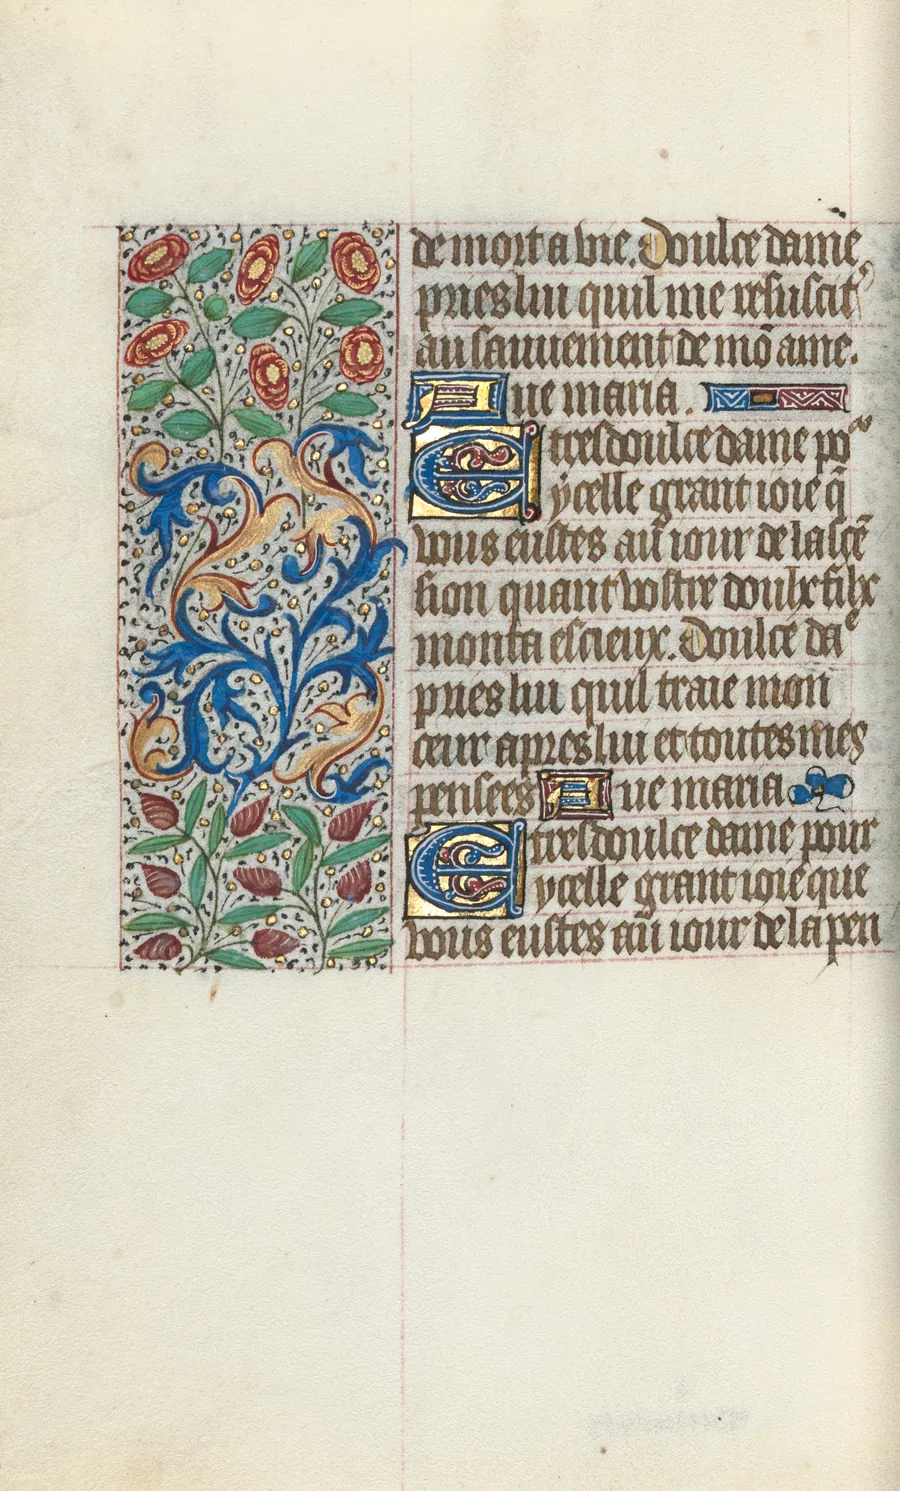 de mort a vie. Doulce dame
pries lui quil me resuscit᾿
au sauuement de mō ame.
Aue maria.
E tresdoulce dame po᷑
ycelle grant ioie q̄
vous eustes au iour de lascē
sion quant vostre doulx filx
monta es cieux. Doulce daᵉ
pries lui quil traie mon
ceur apres lui et toutes mes
pensees Aue maria
E tresdoulce dame pour
ycelle grant ioie que
vous eustes au iour de la pen